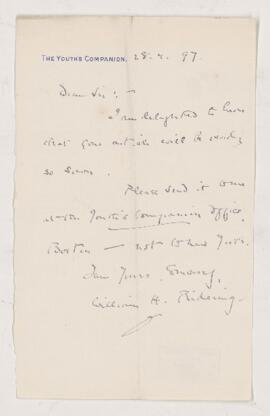 THE YOUTH'S COMPANION. 28. 7. 97.
Dear Sir: -
I am delighted to know
that your article will be ready
so soon.
Please send it to me
at the Youth's Companion Office,
Boston — not to New York.
I am Yours Sincerely,
William H. Rideing.